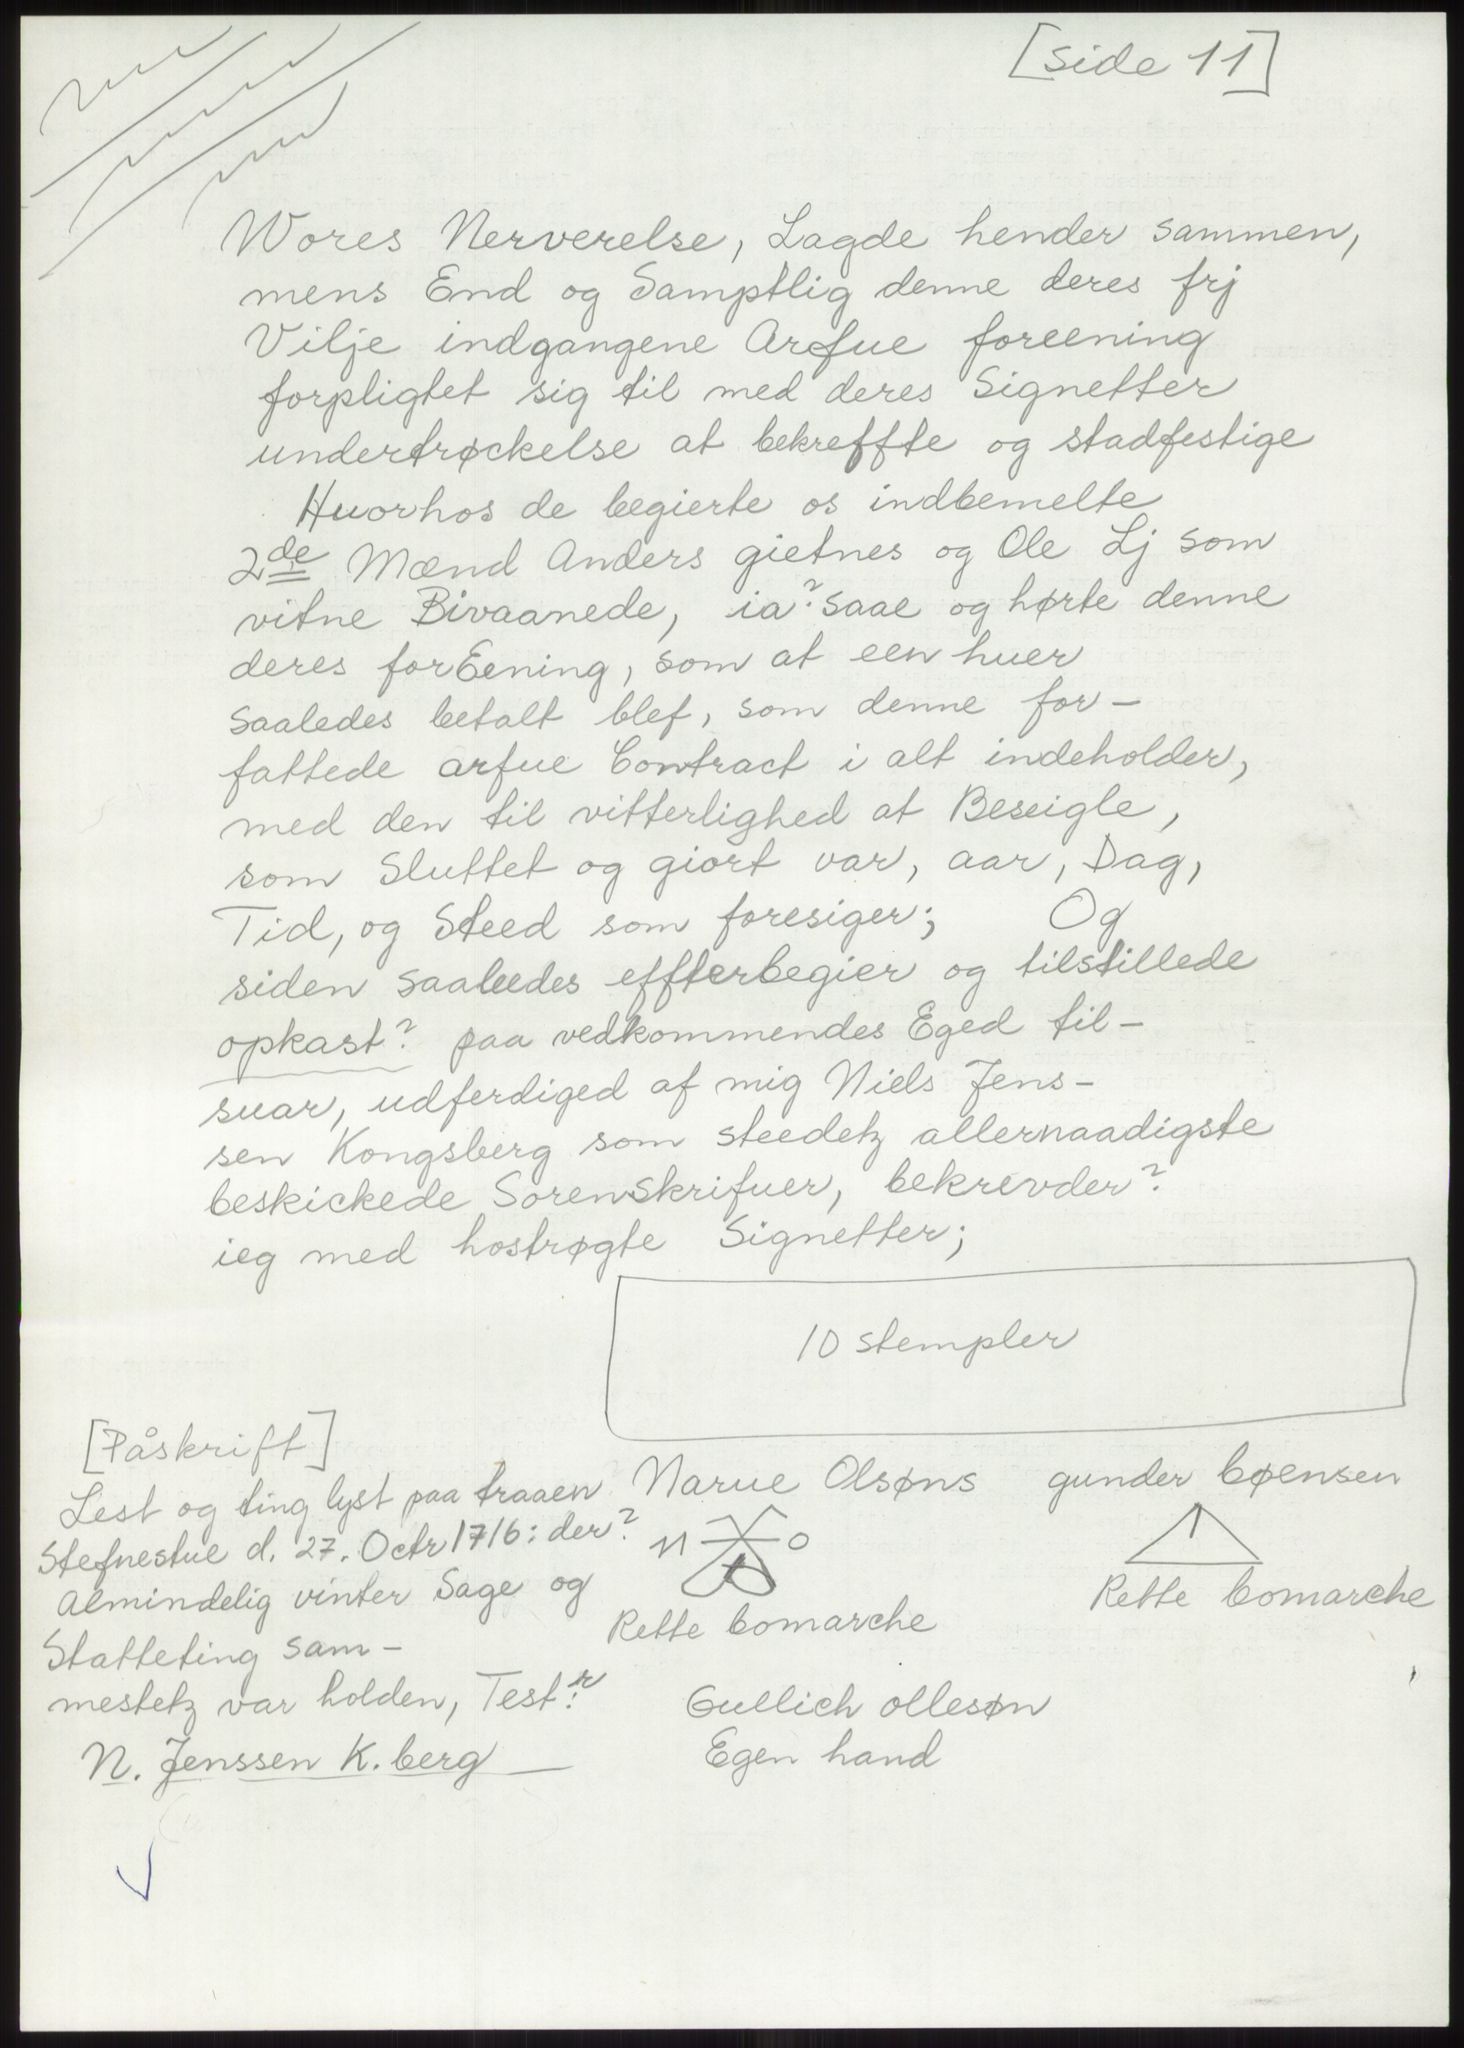 [side 11]
Wores Nerverelse, Lagde hender sammen,
mens End og Samptlig denne deres frj
Vilje indgangene Arfue foreening
forpligtet sig til med deres Signetter
undertrøckelse at bekreffte og stadfestige
Huorhos de begierte os indbemelte
2de Mænd Anders gietnes og Ole Lj som
vitne Bivaanede, ia? saae og hørte denne
deres forEening, som at een huer
saaledes betalt blef, som denne for-
fattede arfue Contract i alt indeholder,
med den til vitterlighed at Beseigle,
som Sluttet og giort var, aar, Dag,
Tid, og Steed som foresiger; Og
siden saaleedes effterbegier og tilstillede
opkast? paa vedkommendes Eged til-
suar, udferdiged af mig Niels Jens-
sen Kongsberg som steedetz allernaadigste
beskickede Sorenskrifuer, bekrevder?
ieg med hostrøgte Signetter;
10 stempler
[Påskrift]
Lest og ting lyst paa traaen
Stefnestue d. 27. Octr 1716: der?
Almindelig vinter Sage og
Statteting sam-
mestetz var holden, Test:r
N. Jenssen K. berg
Narue Olsøns
N O
Rette bomarche
gunder Cøensen
Rette bomarche
Gullich ollesøn
Egen hand